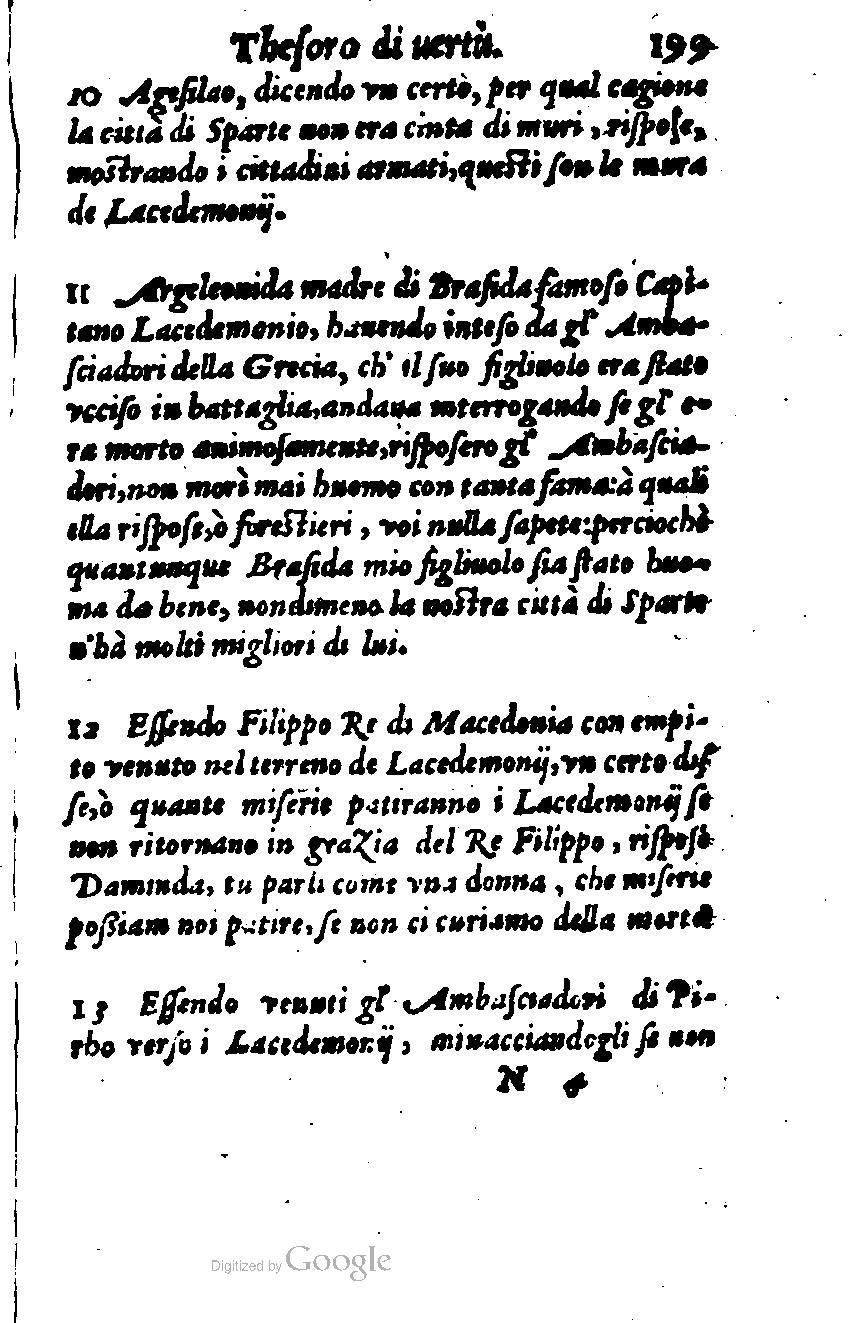 Theſoro di uertù. 199
10 Ageſilao, dicendo vn certò, per qual cagione
la città di Sparte non era cinta di muri, riſpoſe,
moſtrando i cittadini armati, queſti ſon le mura
de Lacedemonij.
11 Argeleonida madre di Braſida famoſo Capì-
tano Lacedemonio, hauendo inteſo da gl' Amba-
ſciadori della Grecia, ch' il ſuo figliuolo era ſtato
vcciſo in battaglia, andaua interrogando ſe gl' e-
ra morto animoſamente, riſpoſero gl' Ambaſcia-
dori, non morì mai huomo con tanta fama: à quali
ella riſpoſe, ò foreſtieri, voi nulla ſapete: perciochè
quantunque Braſida mio figliuolo ſia ſtato huo-
ma da bene, nondimeno la noſtra città di Sparte
n'hà molti migliori di lui.
12 Eſſendo Filippo Re di Macedonia con empi-
to venuto nel terreno de Lacedemonij, vn certo diſ-
ſe, ò quante miſerie patiranno i Lacedemonij ſe
non ritornano in grazia del Re Filippo, riſpoſe
Daminda, tu parli come vna donna, che miſerie
poſſiam noi patire, ſe non ci curiamo della morte
13 Eſſendo venuti gl' Ambaſciadori di Pi-
rho verſo i Lacedemonij, minacciandogli ſe non
N 4
Digitized by Google